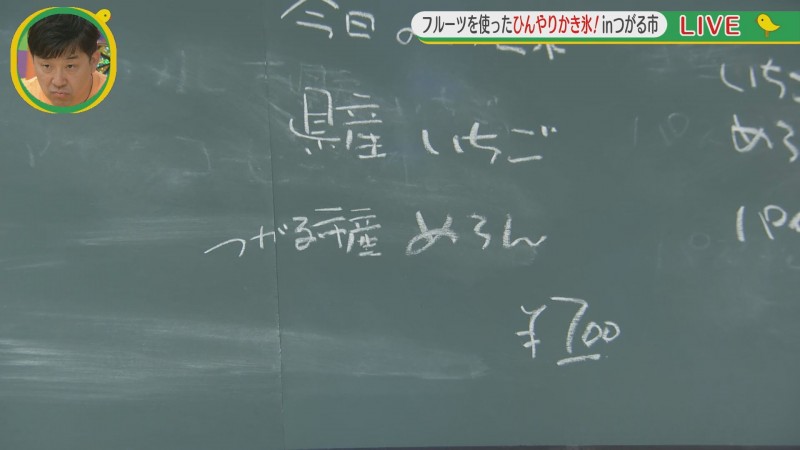 フルーツを使ったひんやりかき氷！inつがる市
LIVE
今日の
県産 いちご
つがる市産 めろん
¥700
いちご
めろ